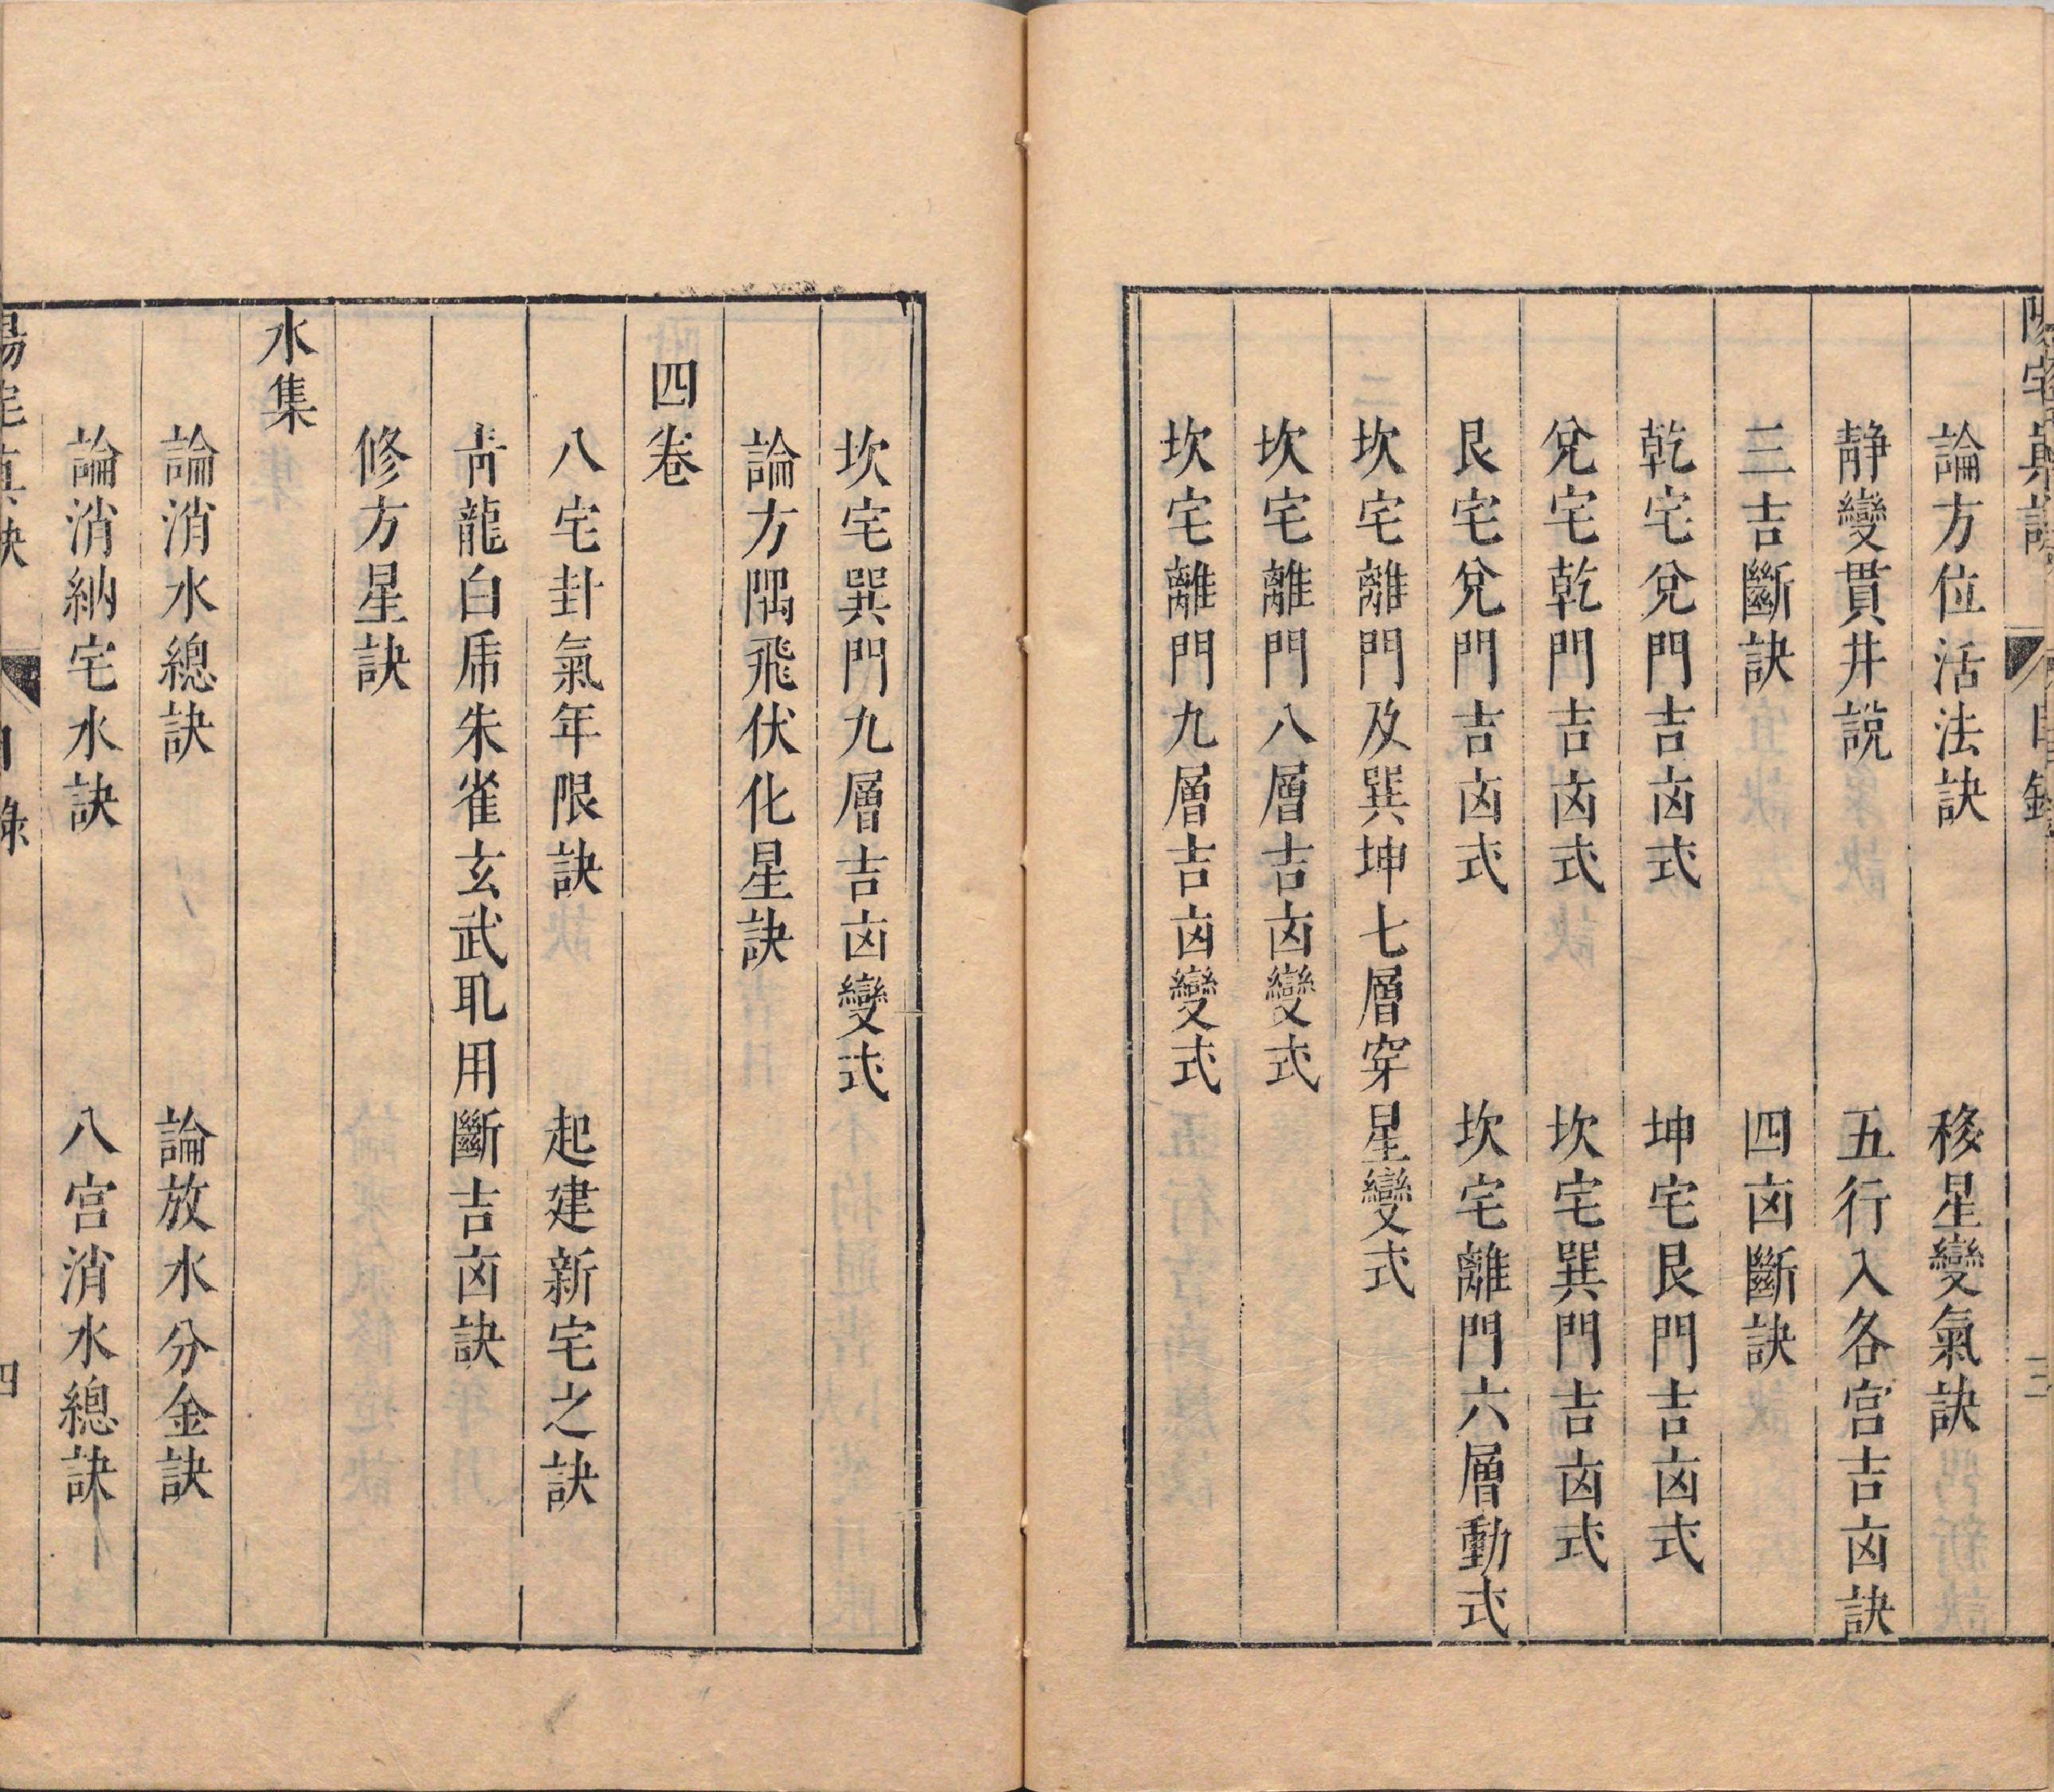 陽宅真訣 目錄 三
論方位活法訣 移星變氣訣
靜變貫井說 五行入各宮吉凶訣
三吉斷訣 四凶斷訣
乾宅兌門吉凶式 坤宅艮門吉凶式
兌宅乾門吉凶式 坎宅巽門吉凶式
艮宅兌門吉凶式 坎宅離門六層動式
坎宅離門及巽坤七層穿星變式
坎宅離門八層吉凶變式
坎宅離門九層吉凶變式
坎宅巽門九層吉凶變式
論方隅飛伏化星訣
四卷
八宅卦氣年限訣 起建新宅之訣
青龍白虎朱雀玄武取用斷吉凶訣
修方星訣
水集
論消水總訣 論放水分金訣
論消納宅水訣 八宮消水總訣
陽宅真訣 目錄 四